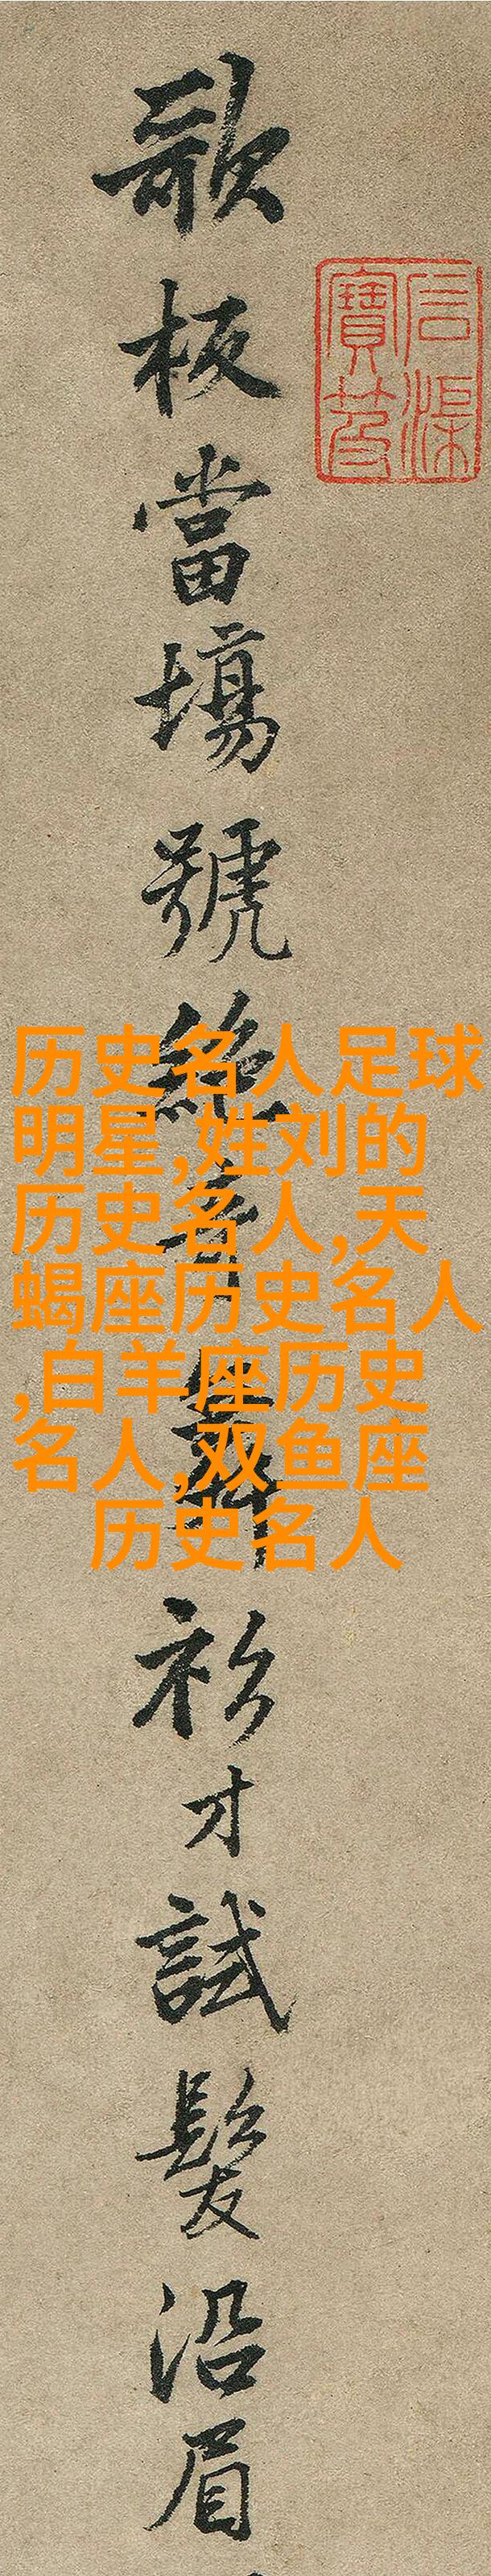 石渠
寶笈
歌板當場號絕奇舞衫才試髮沿眉
历史名人足球
明星,姓刘的
历史名人,天
蝎座历史名人
,白羊座历史
名人,双鱼座
历史名人